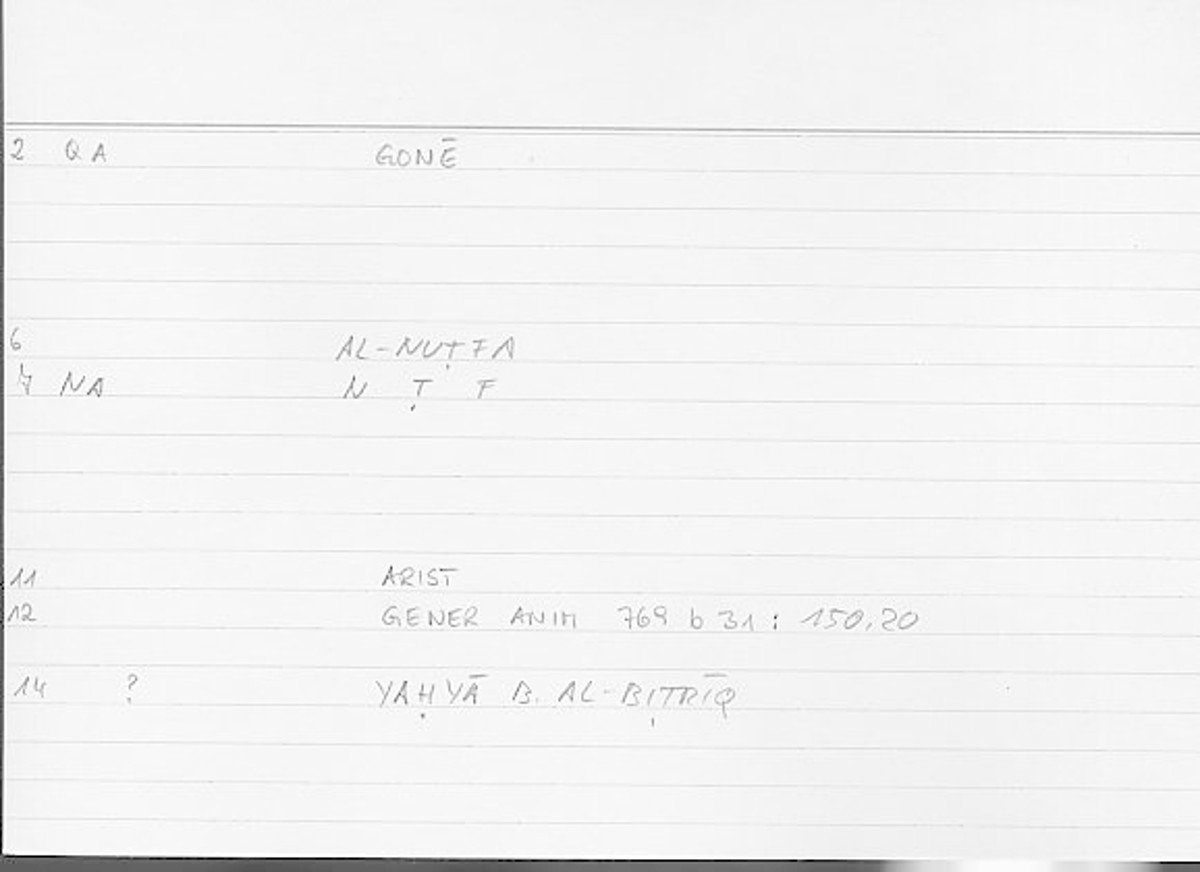 2 QA GONĒ
6 AL-NUṬFA
7 NA N Ṭ F
11 ARIST
12 GENER ANIM 769 b 31 : 150.20
14 ? YAḤYĀ B. AL-BIṬRĪQ